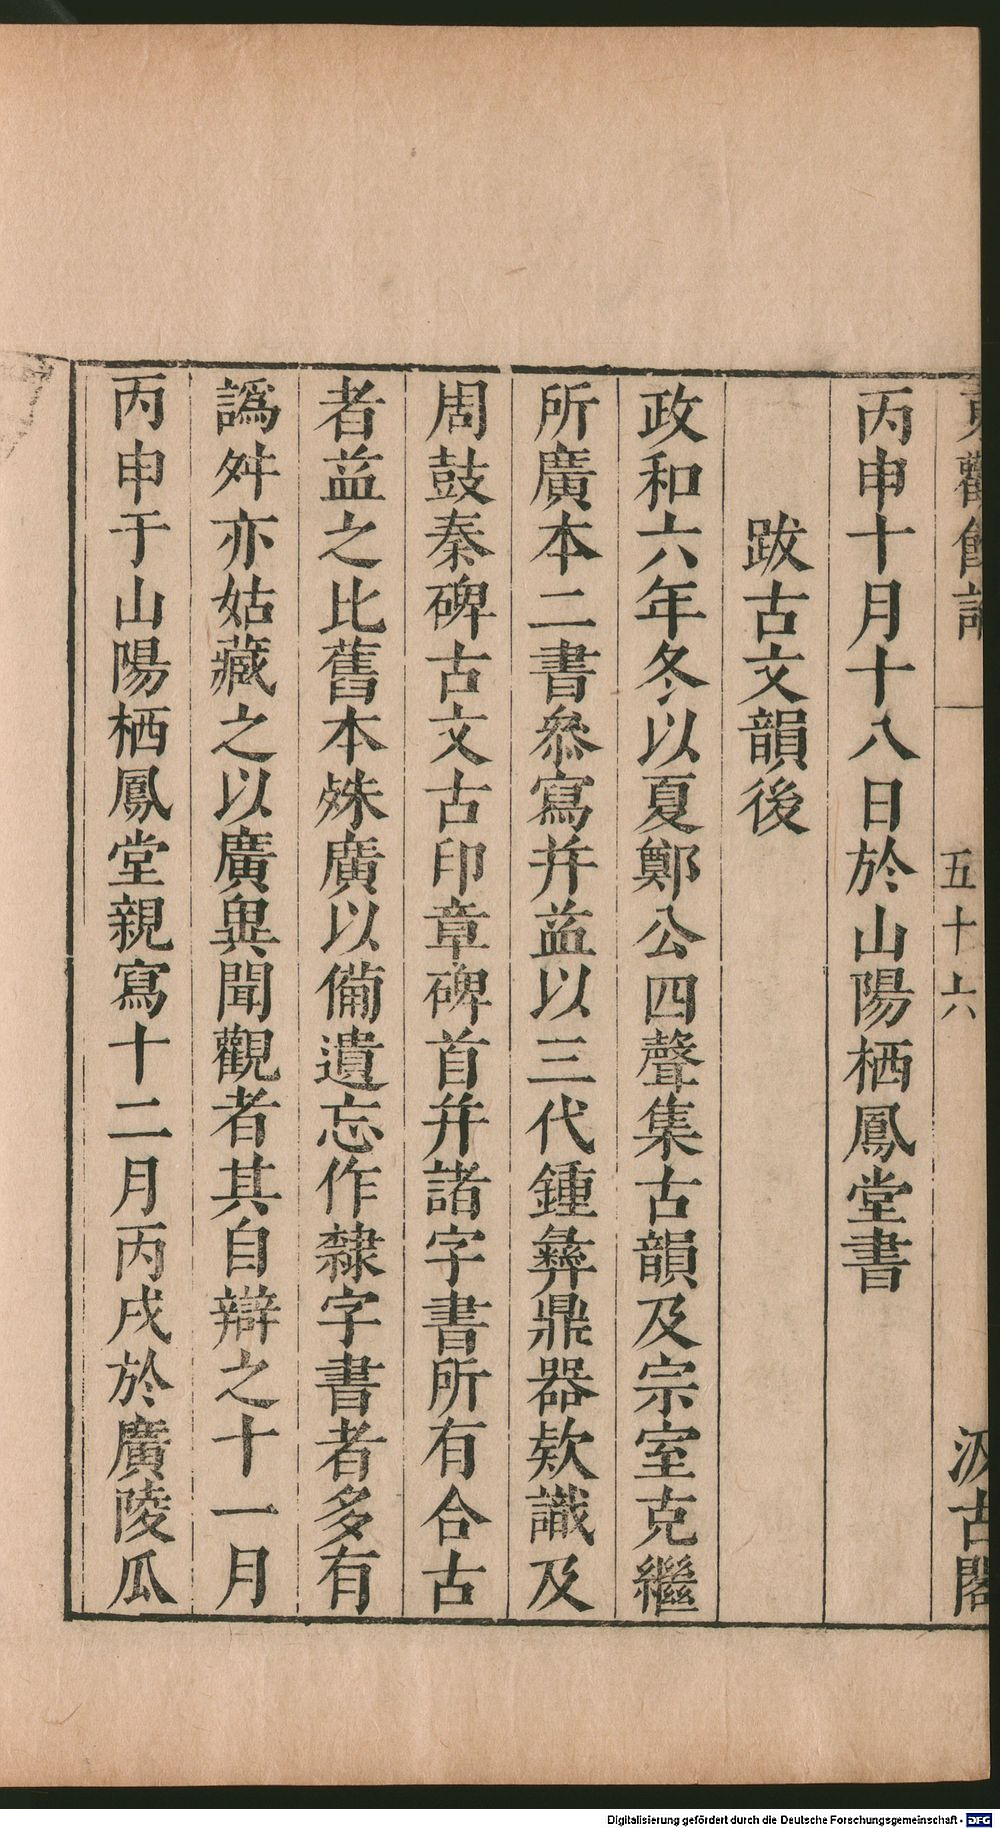 東觀餘論
五十六
汲古閣
丙申十月十八日於山陽栖鳳堂書
跋古文韻後
政和六年冬以夏鄭公四聲集古韻及宗室克繼
所廣本二書叅寫并益以三代鍾彝鼎器欵識及
周鼓秦碑古文古印章碑首并諸字書所有合古
者益之比舊本殊廣以俻遺忘作隸字書者多有
譌舛亦姑藏之以廣異聞觀者其自辯之十一月
丙申于山陽栖鳳堂親寫十二月丙戌於廣陵瓜
Digitalisierung gefördert durch die Deutsche Forschungsgemeinschaft - DFG